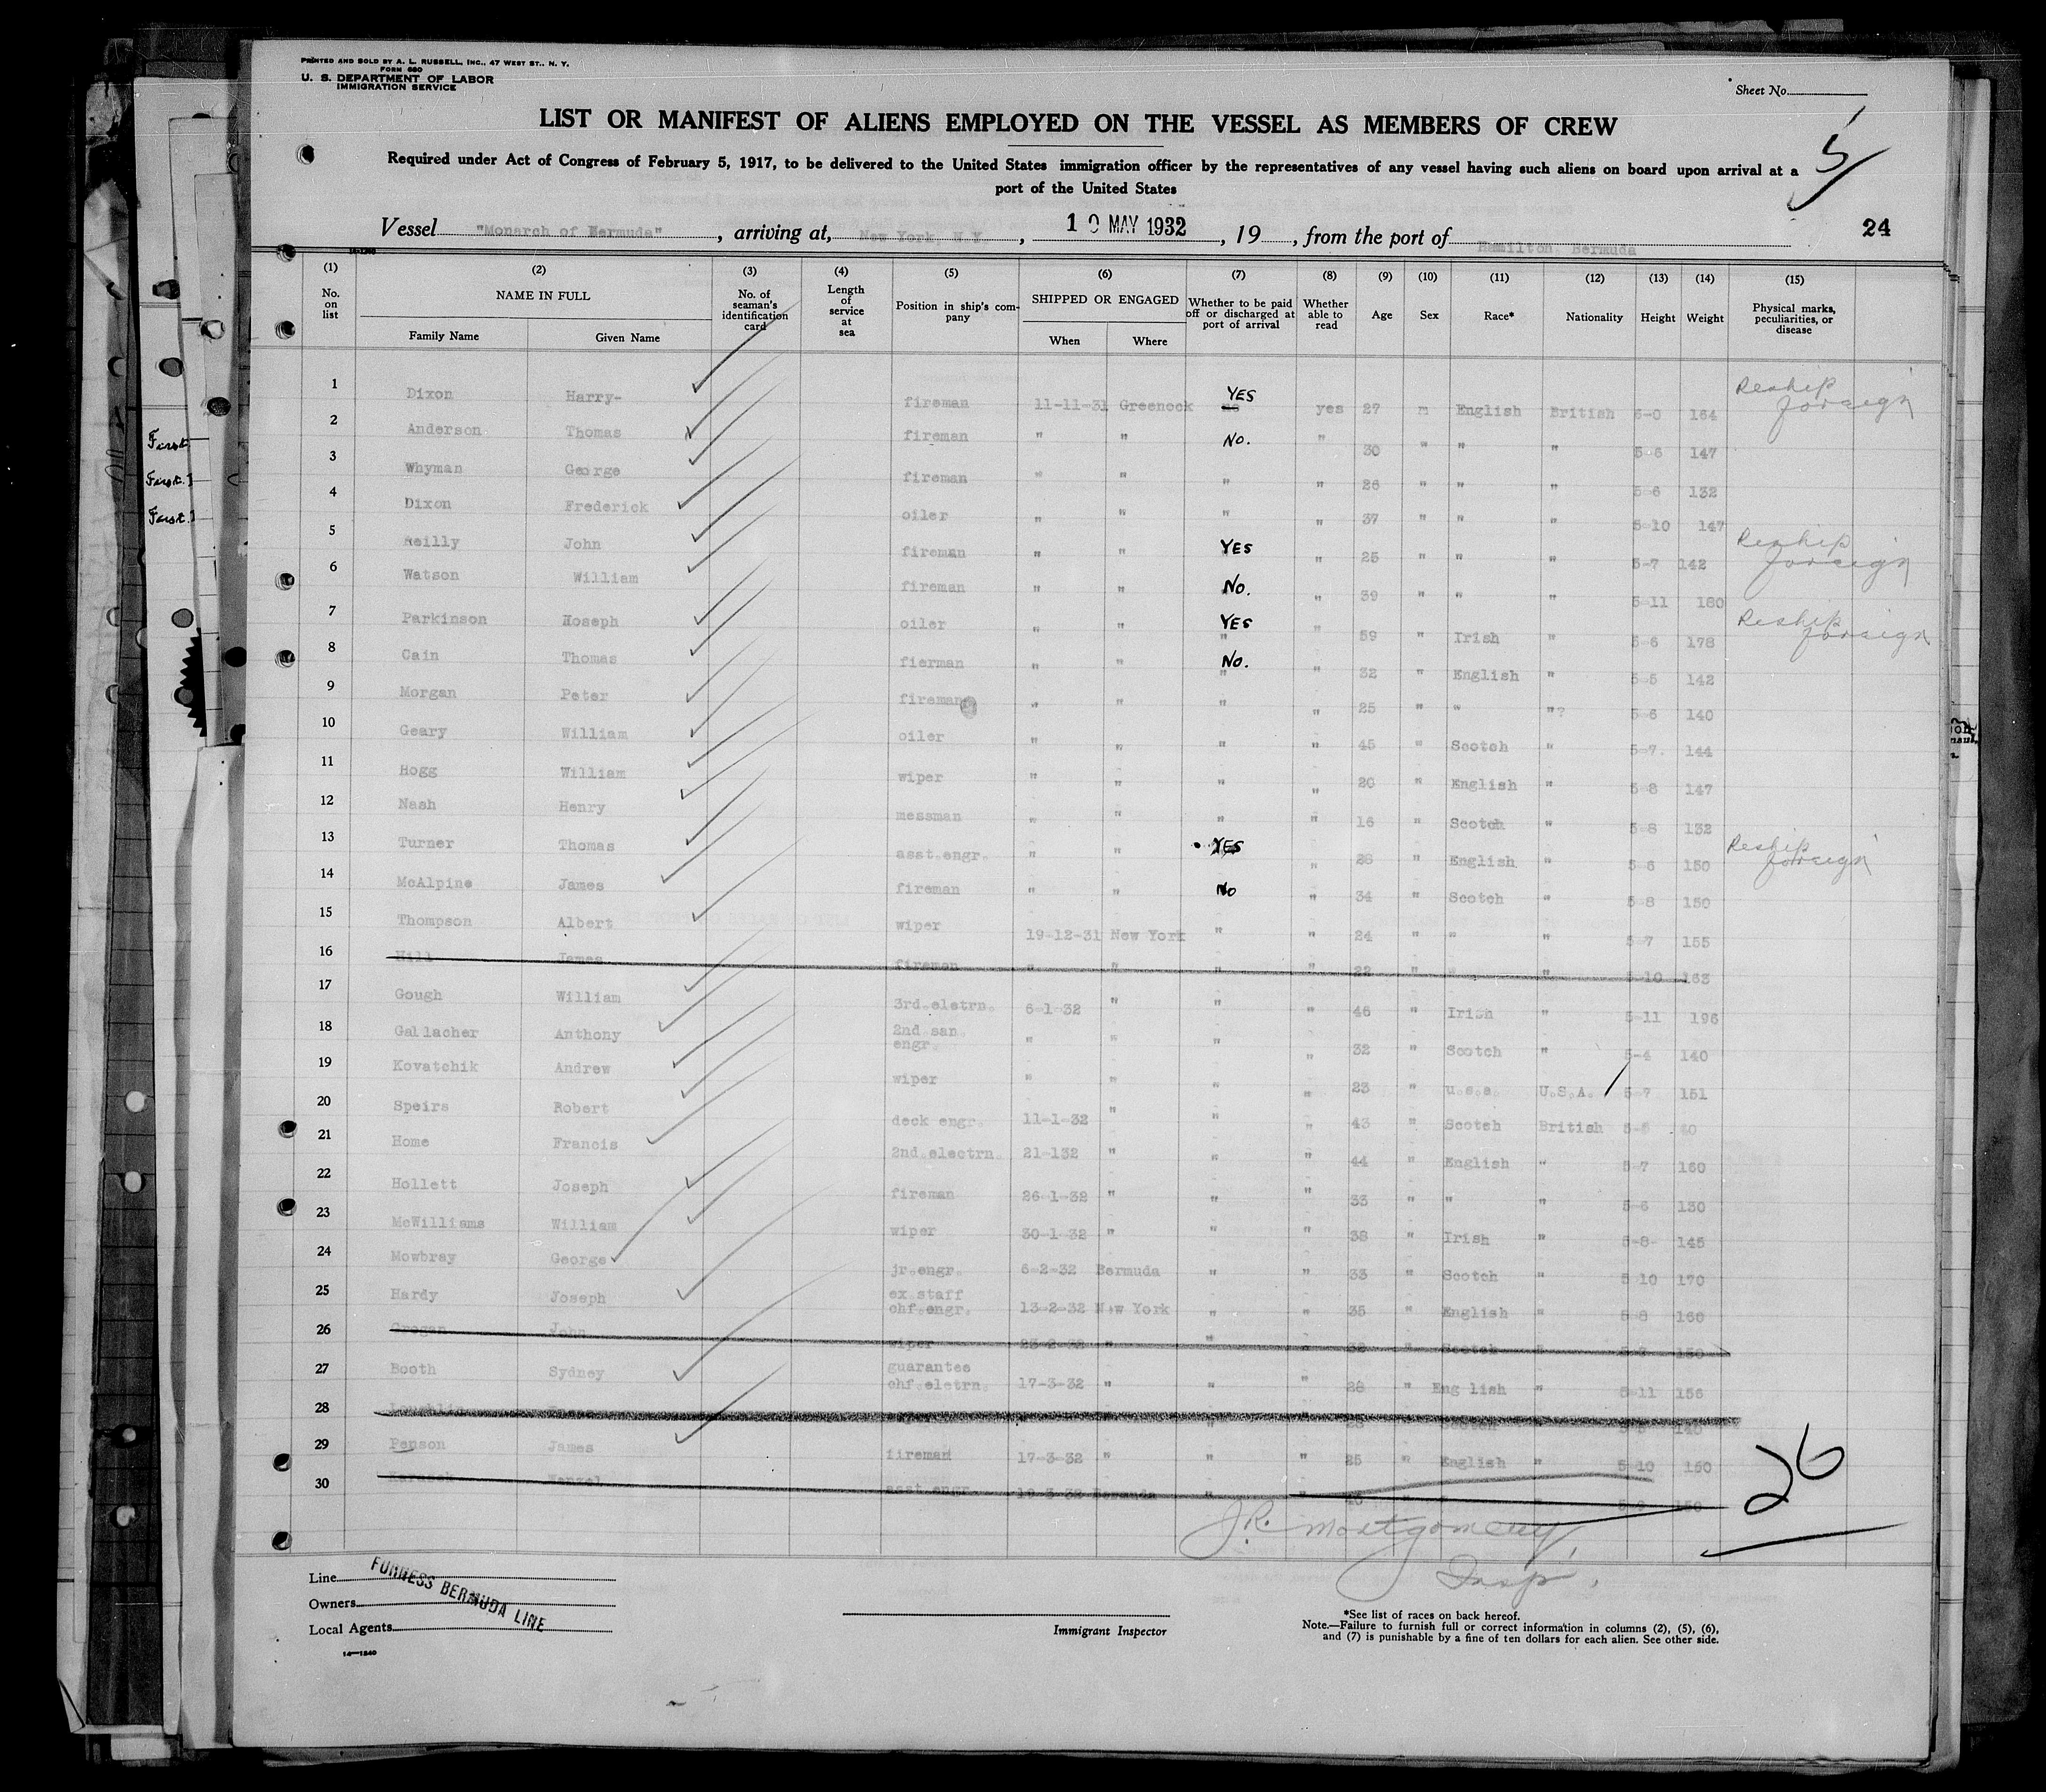 PRINTED AND SOLD BY A. L. RUSSELL, INC., 47 WEST ST., N. Y.
FORM 680
U. S. DEPARTMENT OF LABOR
IMMIGRATION SERVICE
Sheet No.
LIST OR MANIFEST OF ALIENS EMPLOYED ON THE VESSEL AS MEMBERS OF CREW
5
Required under Act of Congress of February 5, 1917, to be delivered to the United States immigration officer by the representatives of any vessel having such aliens on board upon arrival at a
port of the United States
Vessel "Monarch of Bermuda", arriving at, New York, N.Y., 10 MAY 1932, 19, from the port of Hamilton, Bermuda 24
(1) (2) (3) (4) (5) (6) (7) (8) (9) (10) (11) (12) (13) (14) (15)
No. on list NAME IN FULL Family Name Given Name No. of seaman's identification card Length of service at sea Position in ship's company SHIPPED OR ENGAGED When Where Whether to be paid off or discharged at port of arrival Whether able to read Age Sex Race* Nationality Height Weight Physical marks, peculiarities, or disease
1 Dixon Harry- fireman 11-11-31 Greenock YES yes 27 m English British 6-0 164 Reship foreign
2 Anderson Thomas fireman " " No. " 30 " " " 5-6 147
3 Whyman George fireman " " " " 26 " " " 5-6 132
4 Dixon Frederick oiler " " " " 37 " " " 5-10 147
5 Reilly John fireman " " YES " 25 " " " 5-7 142 Reship foreign
6 Watson William fireman " " No. " 39 " " " 5-11 180
7 Parkinson Hoseph oiler " " YES " 59 " Irish " 5-6 178 Reship foreign
8 Cain Thomas fierman " " No. " 32 " English " 5-5 142
9 Morgan Peter fireman " " " " 25 " " "? 5-6 140
10 Geary William oiler " " " " 45 " Scotch " 5-7. 144
11 Hogg William wiper " " " " 20 " English " 5-8 147
12 Nash Henry messman " " " " 16 " Scotch " 5-8 132
13 Turner Thomas asst.engr. " " YES " 28 " English " 5-6 150 Reship foreign
14 McAlpine James fireman " " No " 34 " Scotch " 5-8 150
15 Thompson Albert wiper 19-12-31 New York " " 24 " " " 5-7 155
16 Hill James fireman " " " " 22 " " " 5-10 163
17 Gough William 3rd.eletrn. 6-1-32 " " " 46 " Irish " 5-11 196
18 Gallacher Anthony 2nd san. engr. " " " " 32 " Scotch " 5-4 140
19 Kovatchik Andrew wiper " " " " 23 " u.s.a. U.S.A. 5-7 151
20 Speirs Robert deck engr. 11-1-32 " " " 43 " Scotch British
21 Home Francis 2nd.electrn. 21-132 " " " 44 " English " 5-7 160
22 Hollett Joseph fireman 26-1-32 " " " 33 " " " 5-6 130
23 McWilliams William wiper 30-1-32 " " " 38 " Irish " 5-8- 145
24 Mowbray George jr.engr. 6-2-32 Bermuda " " 33 " Scotch " 5 10 170
25 Hardy Joseph ex staff chf.engr. 13-2-32 New York " " 35 " English " 5-8 160
26 Grogan John wiper 23-2-32 " " " 32 " Scotch "
27 Booth Sydney guarantee chf.eletrn. 17-3-32 " " " 28 " Eng lish " 5-11 156
28 Scotch
29 Penson James fireman 17-3-32 " " " 25 " English " 5-10 150
30 asst.engr. Bermuda
26
J.R. Montgomery
Insp.
Line
Owners
Local Agents
FURNESS BERMUDA LINE
14—1240
Immigrant Inspector
*See list of races on back hereof.
Note.—Failure to furnish full or correct information in columns (2), (5), (6),
and (7) is punishable by a fine of ten dollars for each alien. See other side.
First
First.
First.